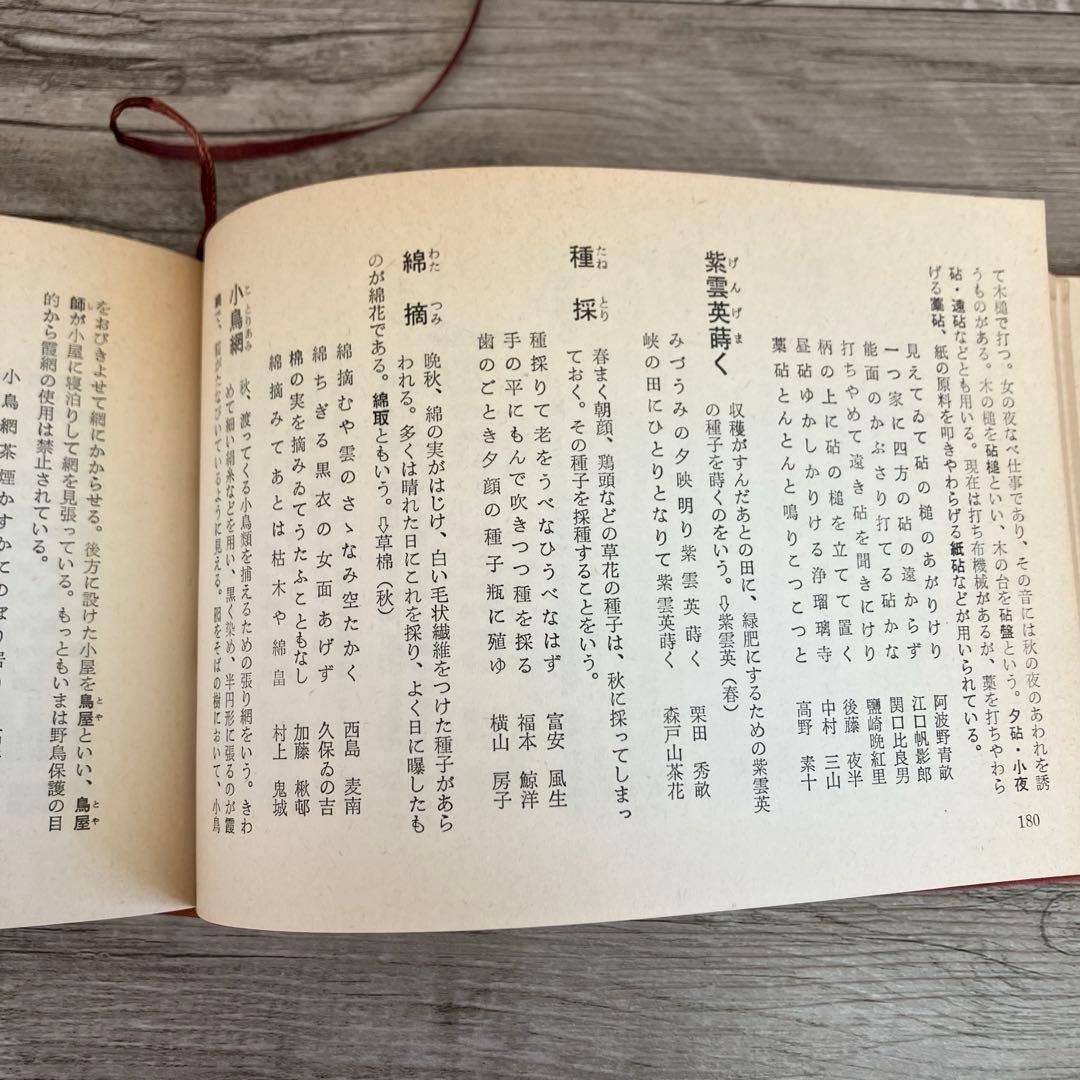 て木槌で打つ。女の夜なべ仕事であり、その音には秋の夜のあわれを誘
うものがある。木の槌を砧槌といい、木の台を砧盤という。夕砧・小夜
砧・遠砧などとも用いる。現在は打ち布機械があるが、藁を打ちやわら
げる藁砧、紙の原料を叩きやわらげる紙砧などが用いられている。
見えてゐて砧の槌のあがりけり 阿波野青畝
一つ家に四方の砧の遠からず 江口帆影郎
能面のかぶさり打てる砧かな 関口比良男
打ちやめて遠き砧を聞きにけり 鹽崎晩紅里
柄の上に砧の槌を立てて置く 後藤 夜半
昼砧ゆかしかりける浄瑠璃寺 中村 三山
藁砧とんとんと鳴りこつこつと 高野 素十
紫雲英蒔く げんげま
収穫がすんだあとの田に、緑肥にするための紫雲英
の種子を蒔くのをいう。⇩紫雲英(春)
みづうみの夕映明り紫雲英蒔く 栗田 秀畝
峡の田にひとりとなりて紫雲英蒔く 森戸山茶花
種採 たねとり
春まく朝顔、鶏頭などの草花の種子は、秋に採ってしまっ
ておく。その種子を採種することをいう。
種採りて老をうべなひうべなはず 富安 風生
手の平にもんで吹きつつ種を採る 福本 鯨洋
歯のごとき夕顔の種子瓶に殖ゆ 横山 房子
綿摘 わたつみ
晩秋、綿の実がはじけ、白い毛状繊維をつけた種子があら
われる。多くは晴れた日にこれを採り、よく日に曝したも
のが綿花である。綿取ともいう。⇩草棉(秋)
綿摘むや雲のさゝなみ空たかく 西島 麦南
綿ちぎる黒衣の女面あげず 久保ゐの吉
棉の実を摘みゐてうたふこともなし 加藤 楸邨
綿摘みてあとは枯木や綿畠 村上 鬼城
小鳥網 ことりあみ
秋、渡ってくる小鳥類を捕えるための張り網をいう。きわ
めて細い絹糸などを用い、黒く染め、半円形に張るのが霞
網で、霞がたなびいているように見える。囮をそばの樹において、小鳥
をおびきよせて網にかからせる。後方に設けた小屋を鳥屋といい、鳥屋
師が小屋に寝泊りして網を見張っている。もっともいまは野鳥保護の目
的から霞網の使用は禁止されている。
小鳥網茶煙かすかにのぼり居り
180